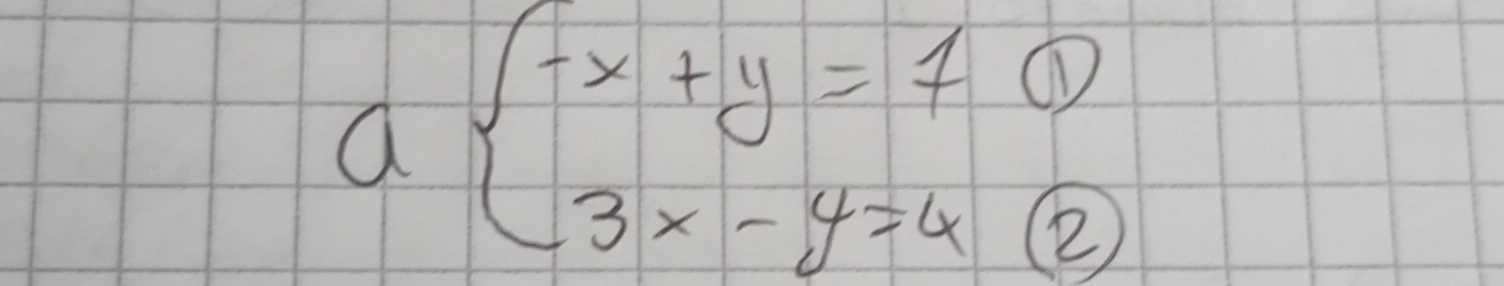 a { -x + y = 1 ①
3x - y = 4 ②